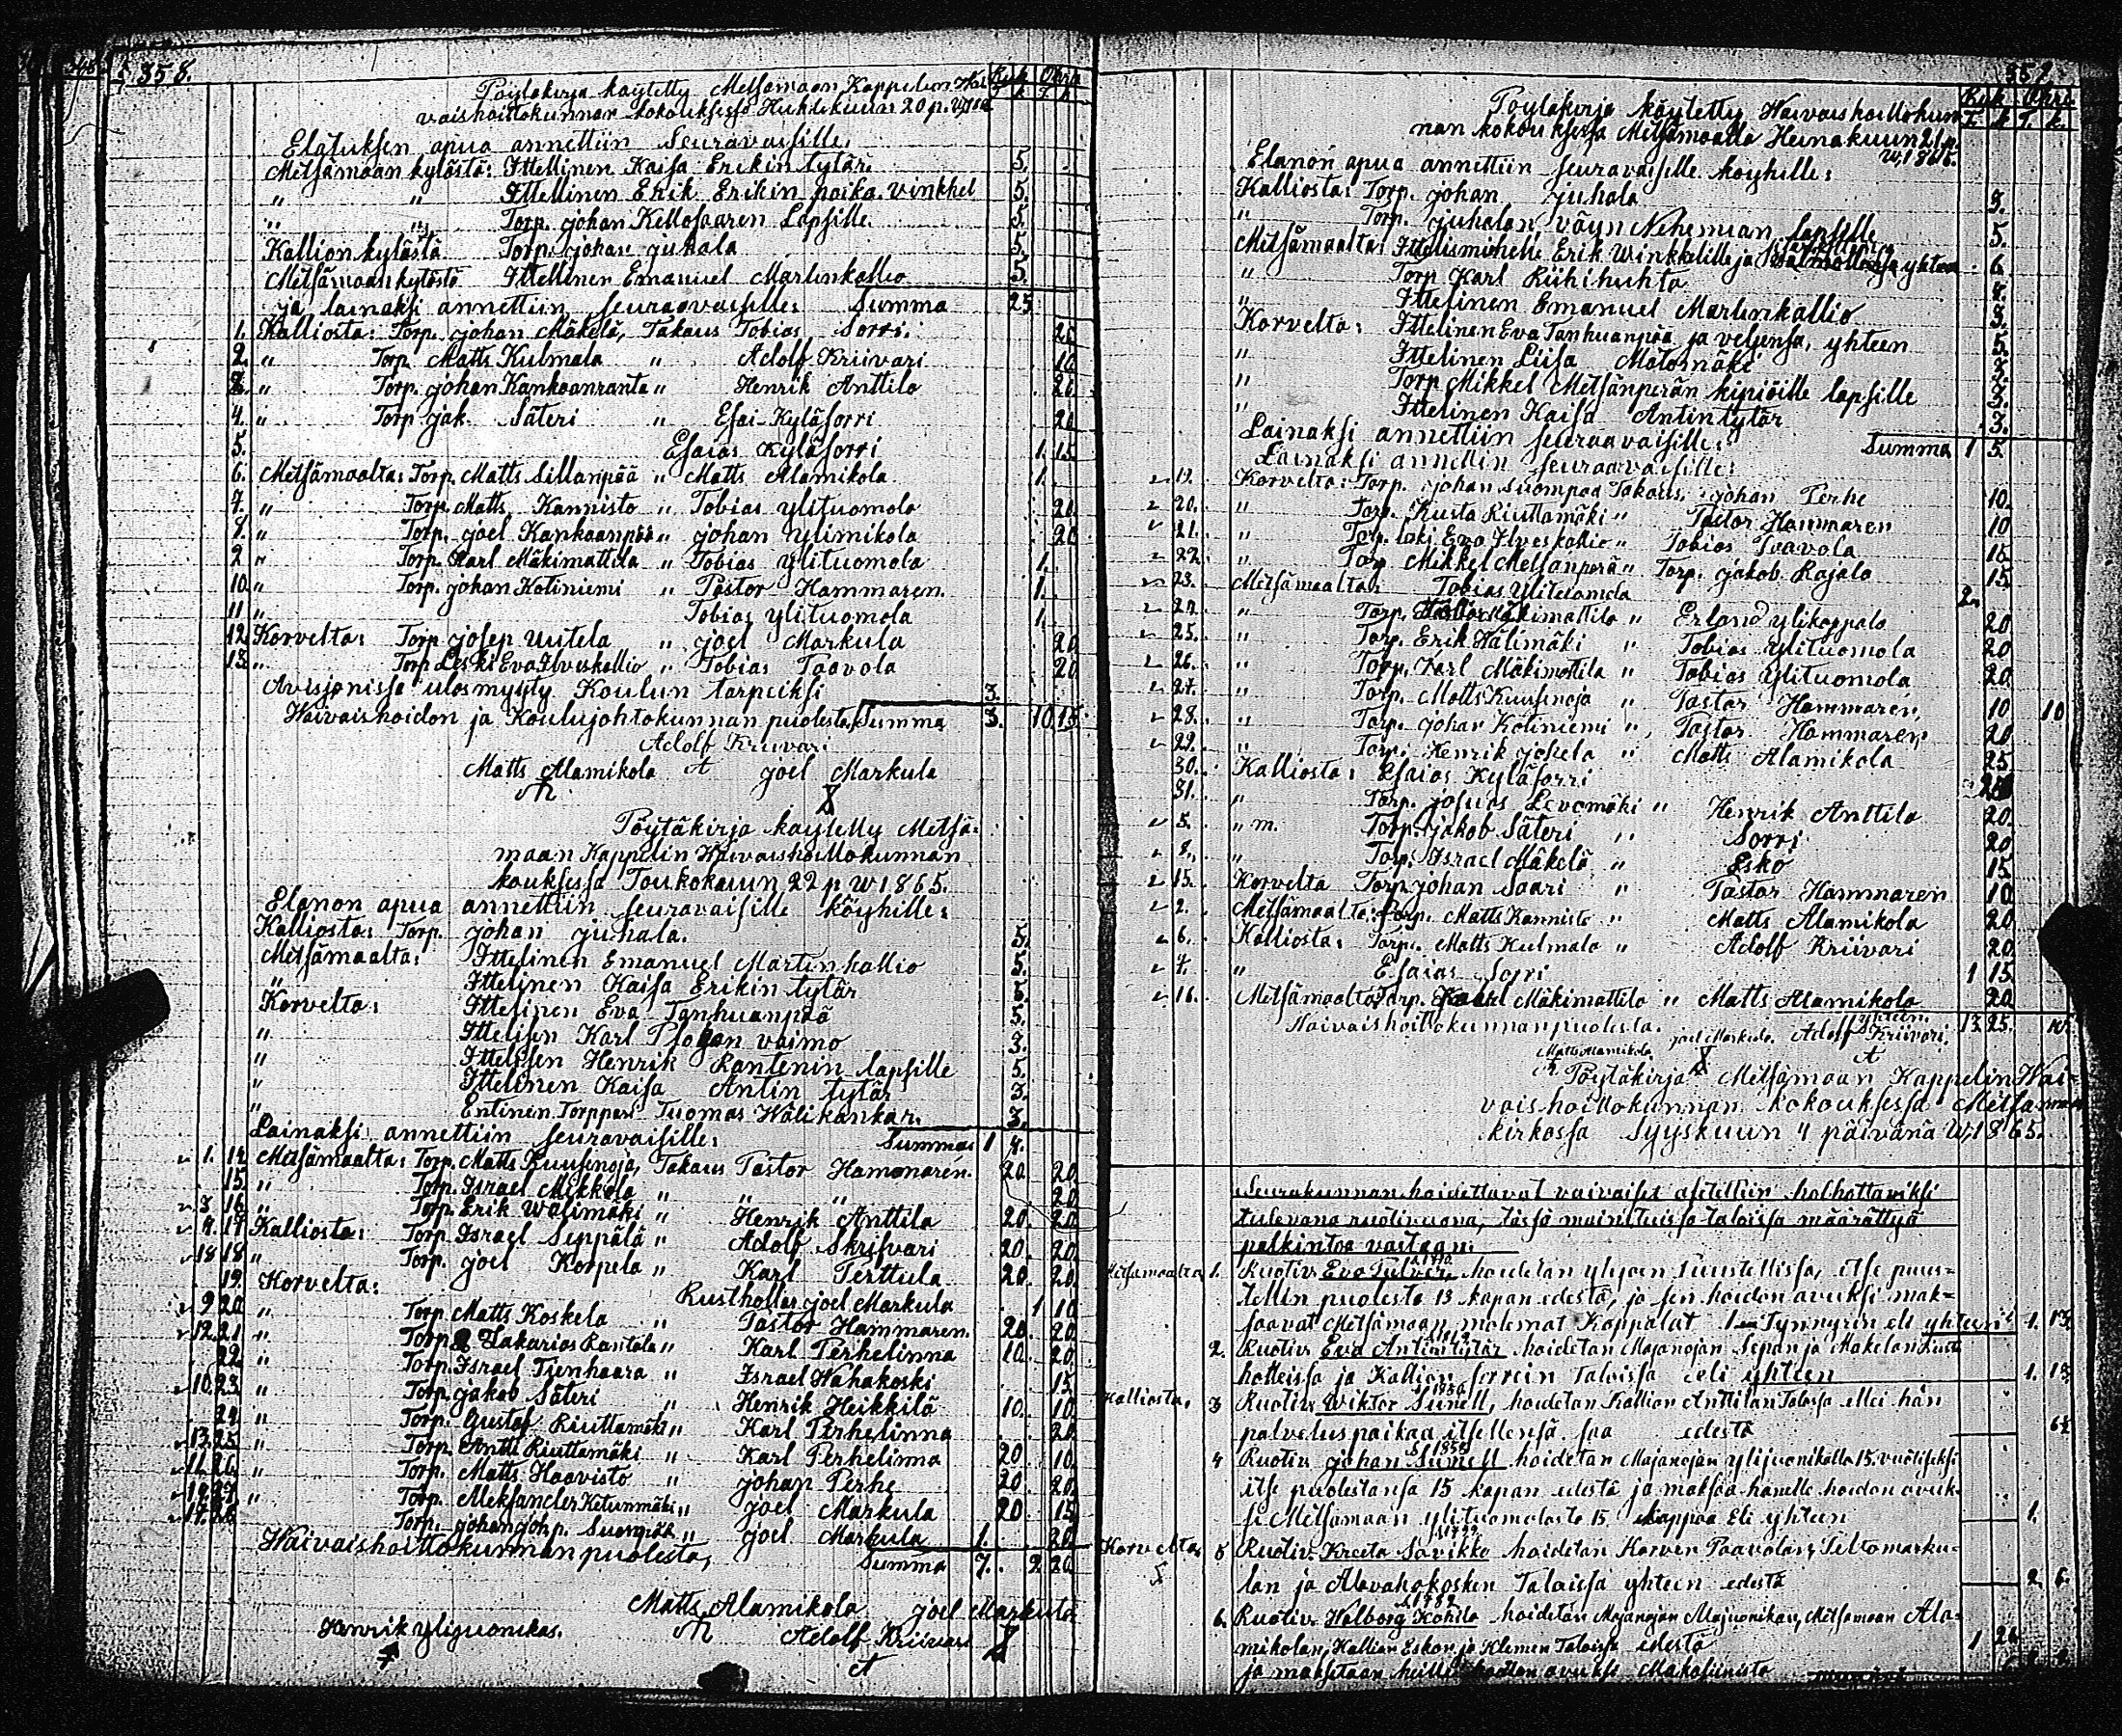 358.
Pöytäkirja käytetty Metsämaan Kappelin Wai
vaishoittokunnan kokouksessa Huhtikuun 20 p.
Ruk. Ohra
T. k. T. k.
Elatuksen apua annettiin Seuravaisille.
Metsämaan kylästä: Ittellinen Kaisa Erikin tytär. 5.
" " Ittellinen Erik Erikin poika Vinkkel 5.
" " Torp. johan Kellosaaren Lapsille. 5.
Kallion kylästä Torp. johan juhala 5.
Metsämaan kylästä Ittellinen Emanuel Martinkallio 5.
ja lainaksi annettiin seuraavaisille: Summa 25
1. Kalliosta: Torp. johan Mäkelä, Takaus Tobias Sorri. 20
2. " Torp. Matts Kulmala " Adolf Kriivari 10
3. " Torp. johan Kankaanranta " Henrik Anttila 20.
4. " Torp. jak. Säteri " Esai Kyläsorri 20
5. Esaias Kyläsorri 1. 15
6. Metsämaalta: Torp. Matts Sillanpää " Matts Alamikola 1.
7. " Torp. Matts Kannisto " Tobias ylituomola 20.
8. " Torp. joel Kankaanpää " johan ylimikola 20
9. " Torp. Karl Mäkimattila " Tobias ylituomola 1.
10. " Torp. johan Kotiniemi " Pastor Hammaren. 1.
11. " Tobias ylituomola 1.
12. Korvelta: Torp. josep Uutela " joel Markula 20
13. " Torp. Leski Eva Ilveskallio " Tobias Taavola 20
Avisjonissa ulosmyyty Koulun tarpeiksi 3.
Waivaishoidon ja Koulujohtokunnan puolesta, Summa 3. 10. 15.
Adolf Kriivari
Matts Alamikola A joel Markula
Pöytäkirja käytetty Metsä-
maan Kappelin Waivaishoittokunnan
kouksessa Toukokuun 22 p. w. 1865.
Elanon apua annettiin seuravaisille köyhille:
Kalliosta: Torp. johan juhala. 5.
Metsämaalta: Ittelinen Emanuel Martinkallio 5.
" Ittelinen Kaisa Erikin tytär 5.
Korvelta: Ittelinen Eva Tanhuanpää 5.
" Ittelisen Karl vaimo 3.
" Ittelisen Henrik Rantenin lapsille 5.
" Ittelinen Kaisa Antin tytär 3.
" Entinen Torppari Tuomas Wälikankar. 3.
Lainaksi annettiin seuravaisille: Summa 1 4.
1. 14. Metsämaalta: Torp. Matts Kuusenoja, Takaus Pastor Hammaren. 20. 20.
15. " Torp. Israel Mikkola " " " 20.
3. 16. " Torp. Erik Wälimäki " Henrik Anttila 20. 20.
4. 17. Kalliosta: Torp. Israel Seppälä " Adolf Skrifvari 20. 20.
18. 18. " Torp. joel Korpela " Karl Perttula 20. 20.
19. Korvelta: Rusthollar joel Markula 1. 10.
9. 20. " Torp. Matts Koskela " Pastor Hammaren. 20. 20.
12. 21. " Torp. Zakarias Rantala " Karl Perhelinna 10. 20.
22. " Torp. Israel Tienhaara " Israel Wähäkoski 15.
10. 23. " Torp. jakob Säteri " Henrik Heikkilä 10. 10.
24. " Torp. Gustaf Riuttamäki " Karl Perhelinna 20.
13. 25. " Torp. Antti Riuttamäki " Karl Perhelinna 20 10.
11. 26. " Torp. Matts Haavisto " johan Perhe 20 20.
27. " Torp. Aleksander Ketunmäki " joel Markula 20 15.
17. 28. Torp. johan johp. Suonpää " joel Markula 1. 20.
Waivaishoittokunnan puolesta, Summa 7. 9. 20.
Matts Alamikola joel Markula
Henrik ylijuonikas. Adolf Kriivari
A
359
Ruk. Ohra.
T. k. T. k.
Pöytäkirja käytetty Waivaishoittokun-
nan kokouksessa Metsämaalla Heinäkuun 21 p.
w. 1865.
Elanon apua annettiin seuravaisille köyhille:
Kalliosta: Torp. johan juhala 3.
" Torp. juhalan, väyn Nehemian lapselle 5.
Metsämaalta: Ittelismiehelle Erik Winkkelille ja yhteen 6.
" Torp Karl Riihihuhta 4.
" Ittelinen Emanuel Martinkallio 3.
Korvelta: Ittelinen Eva Tanhuanpää ja veljensä, yhteen 5.
" Ittelinen Liisa Matomäki 3.
" Torp Mikkel Metsänperän kipiöille lapsille 3.
" Ittelinen Kaisa Antintytär 3.
Lainaksi annettiin seuraavaisille: Summa 1 5.
Lainaksi annettiin seuraavaisille:
19. Korvelta: Torp. johan Suompaa Takaus. johan Perhe 10.
20. " Torp. Kusta Riuttamäki " Pastor Hammaren 10
21. " Torp. leski Eva Ilveskallio " Tobias Taavola 15
22. " Torp Mikkel Metsänperä " Torp. jakob Rajala 15.
23. Metsämaalta: Tobias Ylituomola 2.
24. " Torp. Mäkimattila " Erland ylikappala 20
25. " Torp. Erik Wälimäki " Tobias ylituomola 20
26. " Torp. Karl Mäkimattila " Tobias ylituomola 20.
27. " Torp. Matts Kuusenoja " Pastor Hammaren, 10 10
28. " Torp. johan Kotiniemi " Pastor Hammaren 20
29. " Torp. Henrik jokela " Matts Alamikola 25
30. Kalliosta: Esaias Kyläsorri
31. " Torp. josuas Levomäki " Henrik Anttila 20.
5. " m. Torp. jakob Säteri " Sorri 20
8. " Torp. Israel Mäkelä " Esko 15.
15. Korvelta Torp. johan Saari " Pastor Hammaren 10.
2. Metsämaalta: Torp. Matts Kannisto " Matts Alamikola 20
6. Kalliosta: Torp. Matts Kulmala " Adolf Kriivari 20.
7. " Esaias Sorri 1 15.
16. Metsämaalta: Torp. Kaarl Mäkimattila " Matts Alamikola 20
yhteen. 13. 25. 10.
Waivaishoittokunnan puolesta. joel Markula. Adolf Kriivari.
Matts Alamikola. A
Pöytäkirja Metsämaan Kappelin Wai-
vaishoittokunnan kokouksessa Metsämaan
kirkossa Syyskuun 4 päivänä w. 1865.
Seurakunnan hoidettavat vaivaiset asetettiin holhottaviksi
tulevana ruotivuona, tässä mainituissa taloissa määrättyä
palkintoa vastaan:
Metsämaalta 1. Ruotiv. Eva Tulver, hoidetan ylijoen Puustellissa, itse puus-
tellin puolesta 13 kapan edestä, ja sen hoidon avuksi mak-
saavat Metsämaan molemat Kappalat 1 Tynnyrin eli yhteen 1. 13.
2. Ruotiv. Eva Antintytär hoidetan Majanojan Sepän ja Mäkelän Rust
holleissa ja Kallion sorrein Taloissa eli yhteen 1. 13.
Kalliosta, 3 Ruotiv. Wiktor Sunell, hoidetan Kallion Anttilan Talossa ellei hän
palveluspaikaa itsellensä saa edestä
4 Ruotiv. johan Sunell hoidetan Majanojan ylijuonikalla 15. vuotiseksi
itse puolestansa 15 kapan edestä ja maksaa hänelle hoidon avuk-
si Metsämaan ylituomolasta 15. kappaa Eli yhteen 1.
Korvelta 5 Ruotiv. Kreeta Savikko hoidetan Korven Paavolan, Peltomarku-
lan ja Alavahakosken Taloissa yhteen edestä 2. 6.
6. Ruotiv. Walborg hoidetan Majanojan Alajuonikan, Metsämaan Ala-
mikolan, Kallian Eskon ja Klemen Taloissa edestä 1
ja maksetaan heille hoidon avuksi Makasiinista